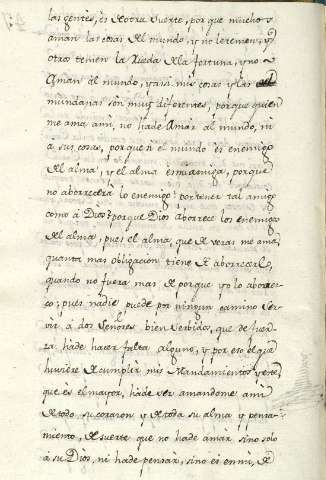 las gentes, es de otra suerte, porque muchos
aman las cosas del mundo, y no le temen, y
otros temen la Rueda de la fortuna, y no
Aman al mundo, y assi mis cosas y las
mundanas son muy diferentes, porque quien
me ama ami, no hade Amar al mundo, ni
a sus cosas, porque si el mundo es enemigo
del alma, y el alma es mi amiga, porque
no aborrecera lo enemigo? por tener tal amigo
como à Dios? porque Dios aborrece los enemigos
del alma, pues el alma, que de veras me ama,
quanta mas obligacion tiene de aborrecerlo,
quando no fuera mas de porque yo lo aborrez-
co; pues nadie puede por ningun camino ser-
vir, à dos señores bien servidos, que de fuer-
za, hade hacer falta alguno, y por eso el que
huviere de cumplir mis Mandamientos y este,
que es el mayor, hade ser amandome ami
de todo, su corazon y de toda su alma y pensa-
miento, de suerte que no hade amar sino solo
à su Dios, ni hade pensar, sino es en mi, de